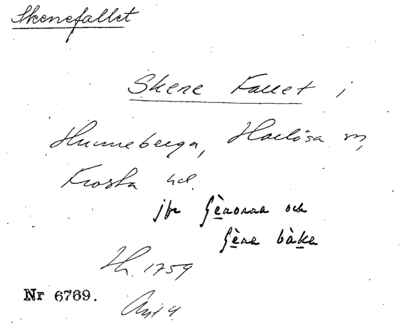 Skenefallet
Skene Fallet i
Hunneberga, Harlösa sn,
Frosta hd.
jfr Gènorna och
Gène bàke
Lh. 1759
Nr 6769.
Akt 4